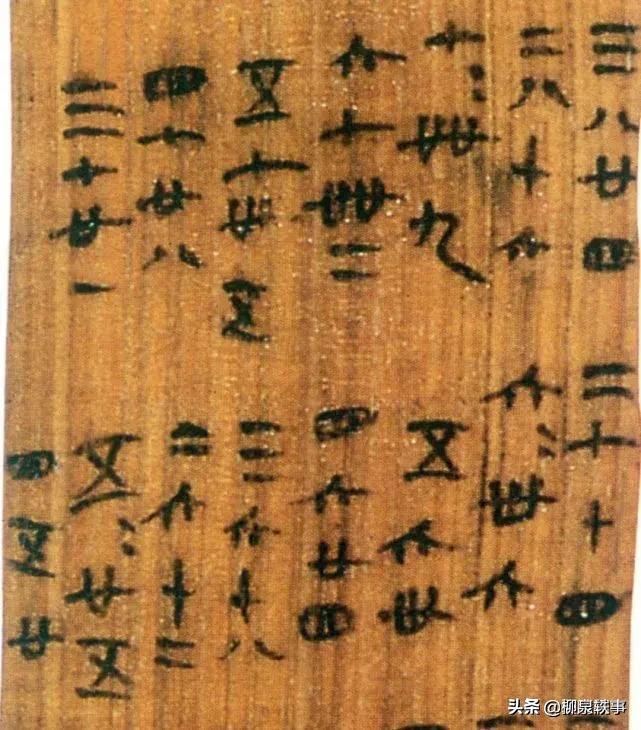 三八廿四
二八十六
七〻卌九
六七卌二
五七卅五
四七廿八
三七廿一
二七十四
六〻卅六
五六卅
四六廿四
三六十八
二六十二
五〻廿五
四五廿
头条 @柳泉轶事